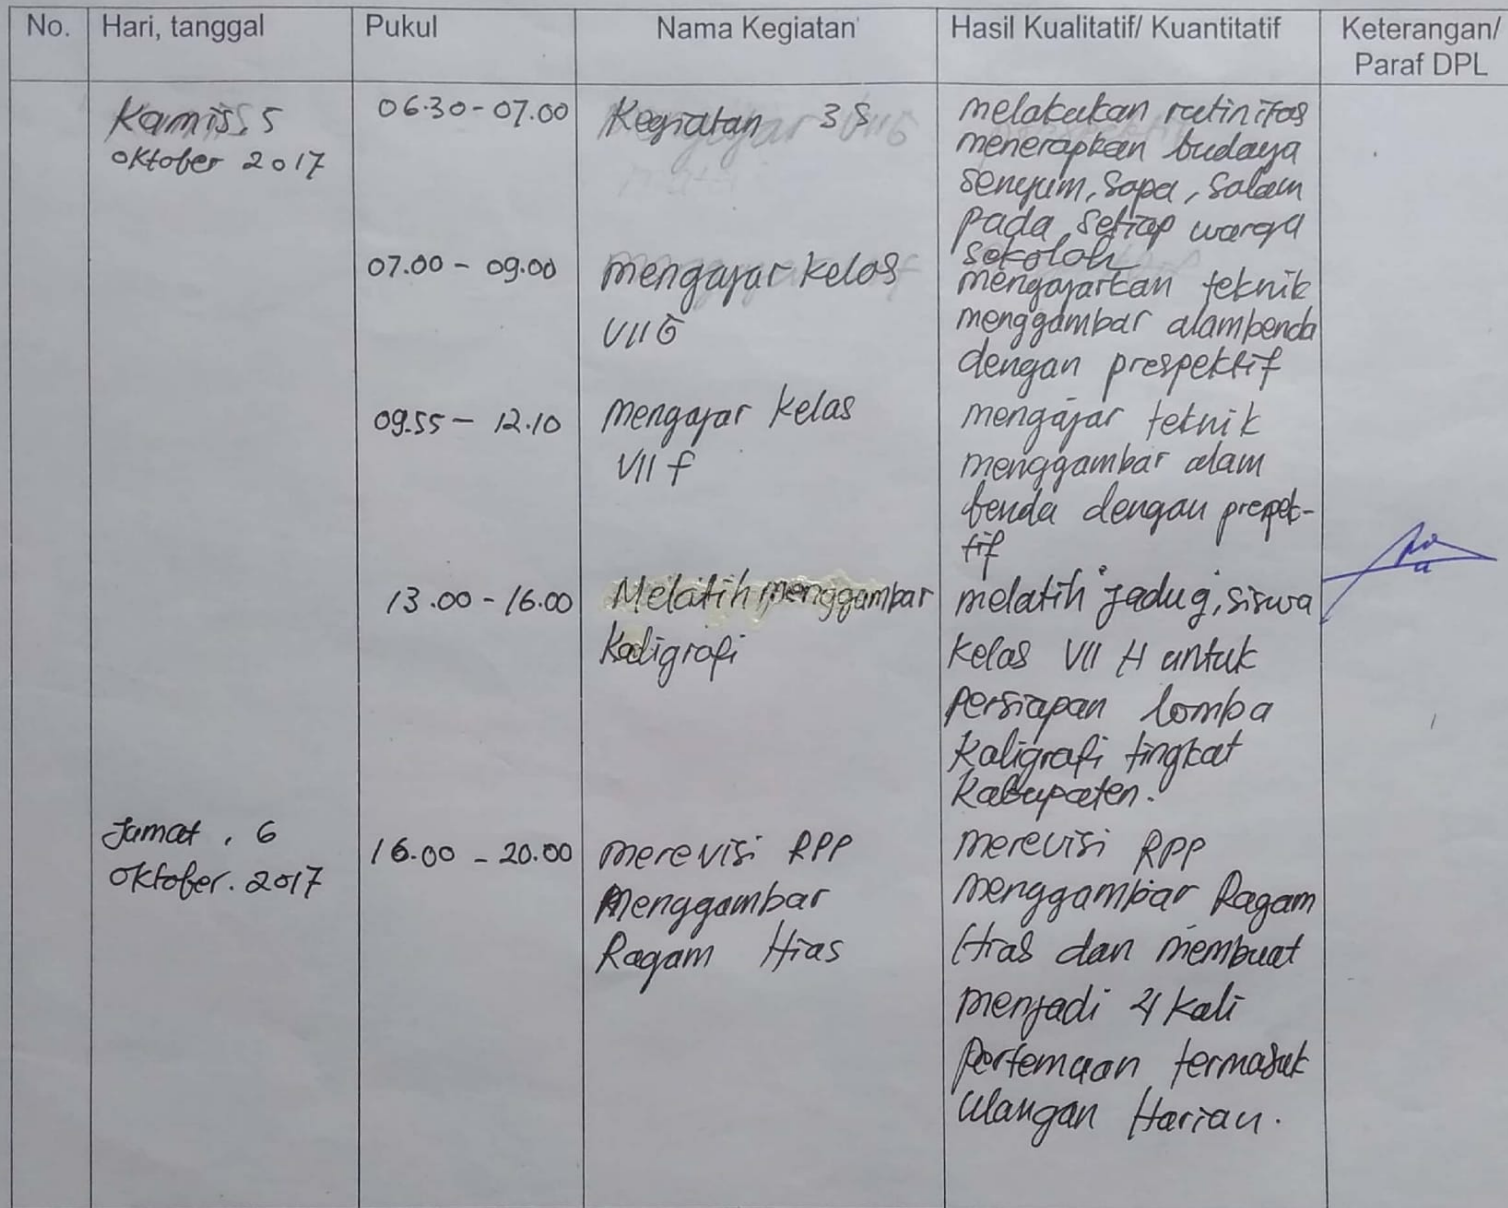 No. Hari, tanggal Pukul Nama Kegiatan Hasil Kualitatif/ Kuantitatif Keterangan/
Paraf DPL
Kamis, 5 06.30 - 07.00 Kegiatan 3S melakukan rutinitas
oktober 2017 menerapkan budaya
senyum, sapa, salam
pada setiap warga
sekolah
07.00 - 09.00 mengajar kelas mengajarkan teknik
VII G menggambar alambenda
dengan prespektif
09.55 - 12.10 mengajar kelas mengajar teknik
VII f menggambar alam
benda dengan prespek-
tif
13.00 - 16.00 Melatih menggambar melatih jadug, siswa
Kaligrafi kelas VII H untuk
persiapan lomba
kaligrafi tingkat
kabupaten.
Jumat, 6 16.00 - 20.00 merevisi RPP merevisi RPP
oktober. 2017 Menggambar menggambar Ragam
Ragam Hias Hias dan membuat
menjadi 4 kali
pertemuan termasuk
ulangan Harian.